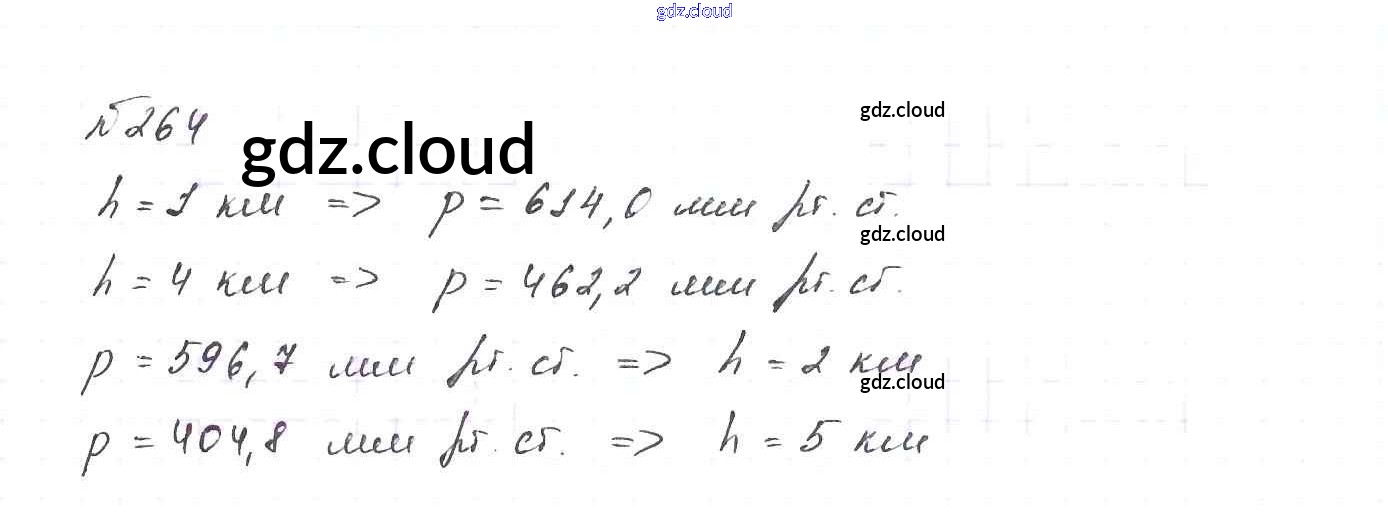 gdz.cloud
№264
gdz.cloud
gdz.cloud
h = 1 км => p = 614,0 мм рт. ст.
gdz.cloud
h = 4 км => p = 462,2 мм рт. ст.
p = 596,7 мм рт. ст. => h = 2 км
gdz.cloud
p = 404,8 мм рт. ст. => h = 5 км